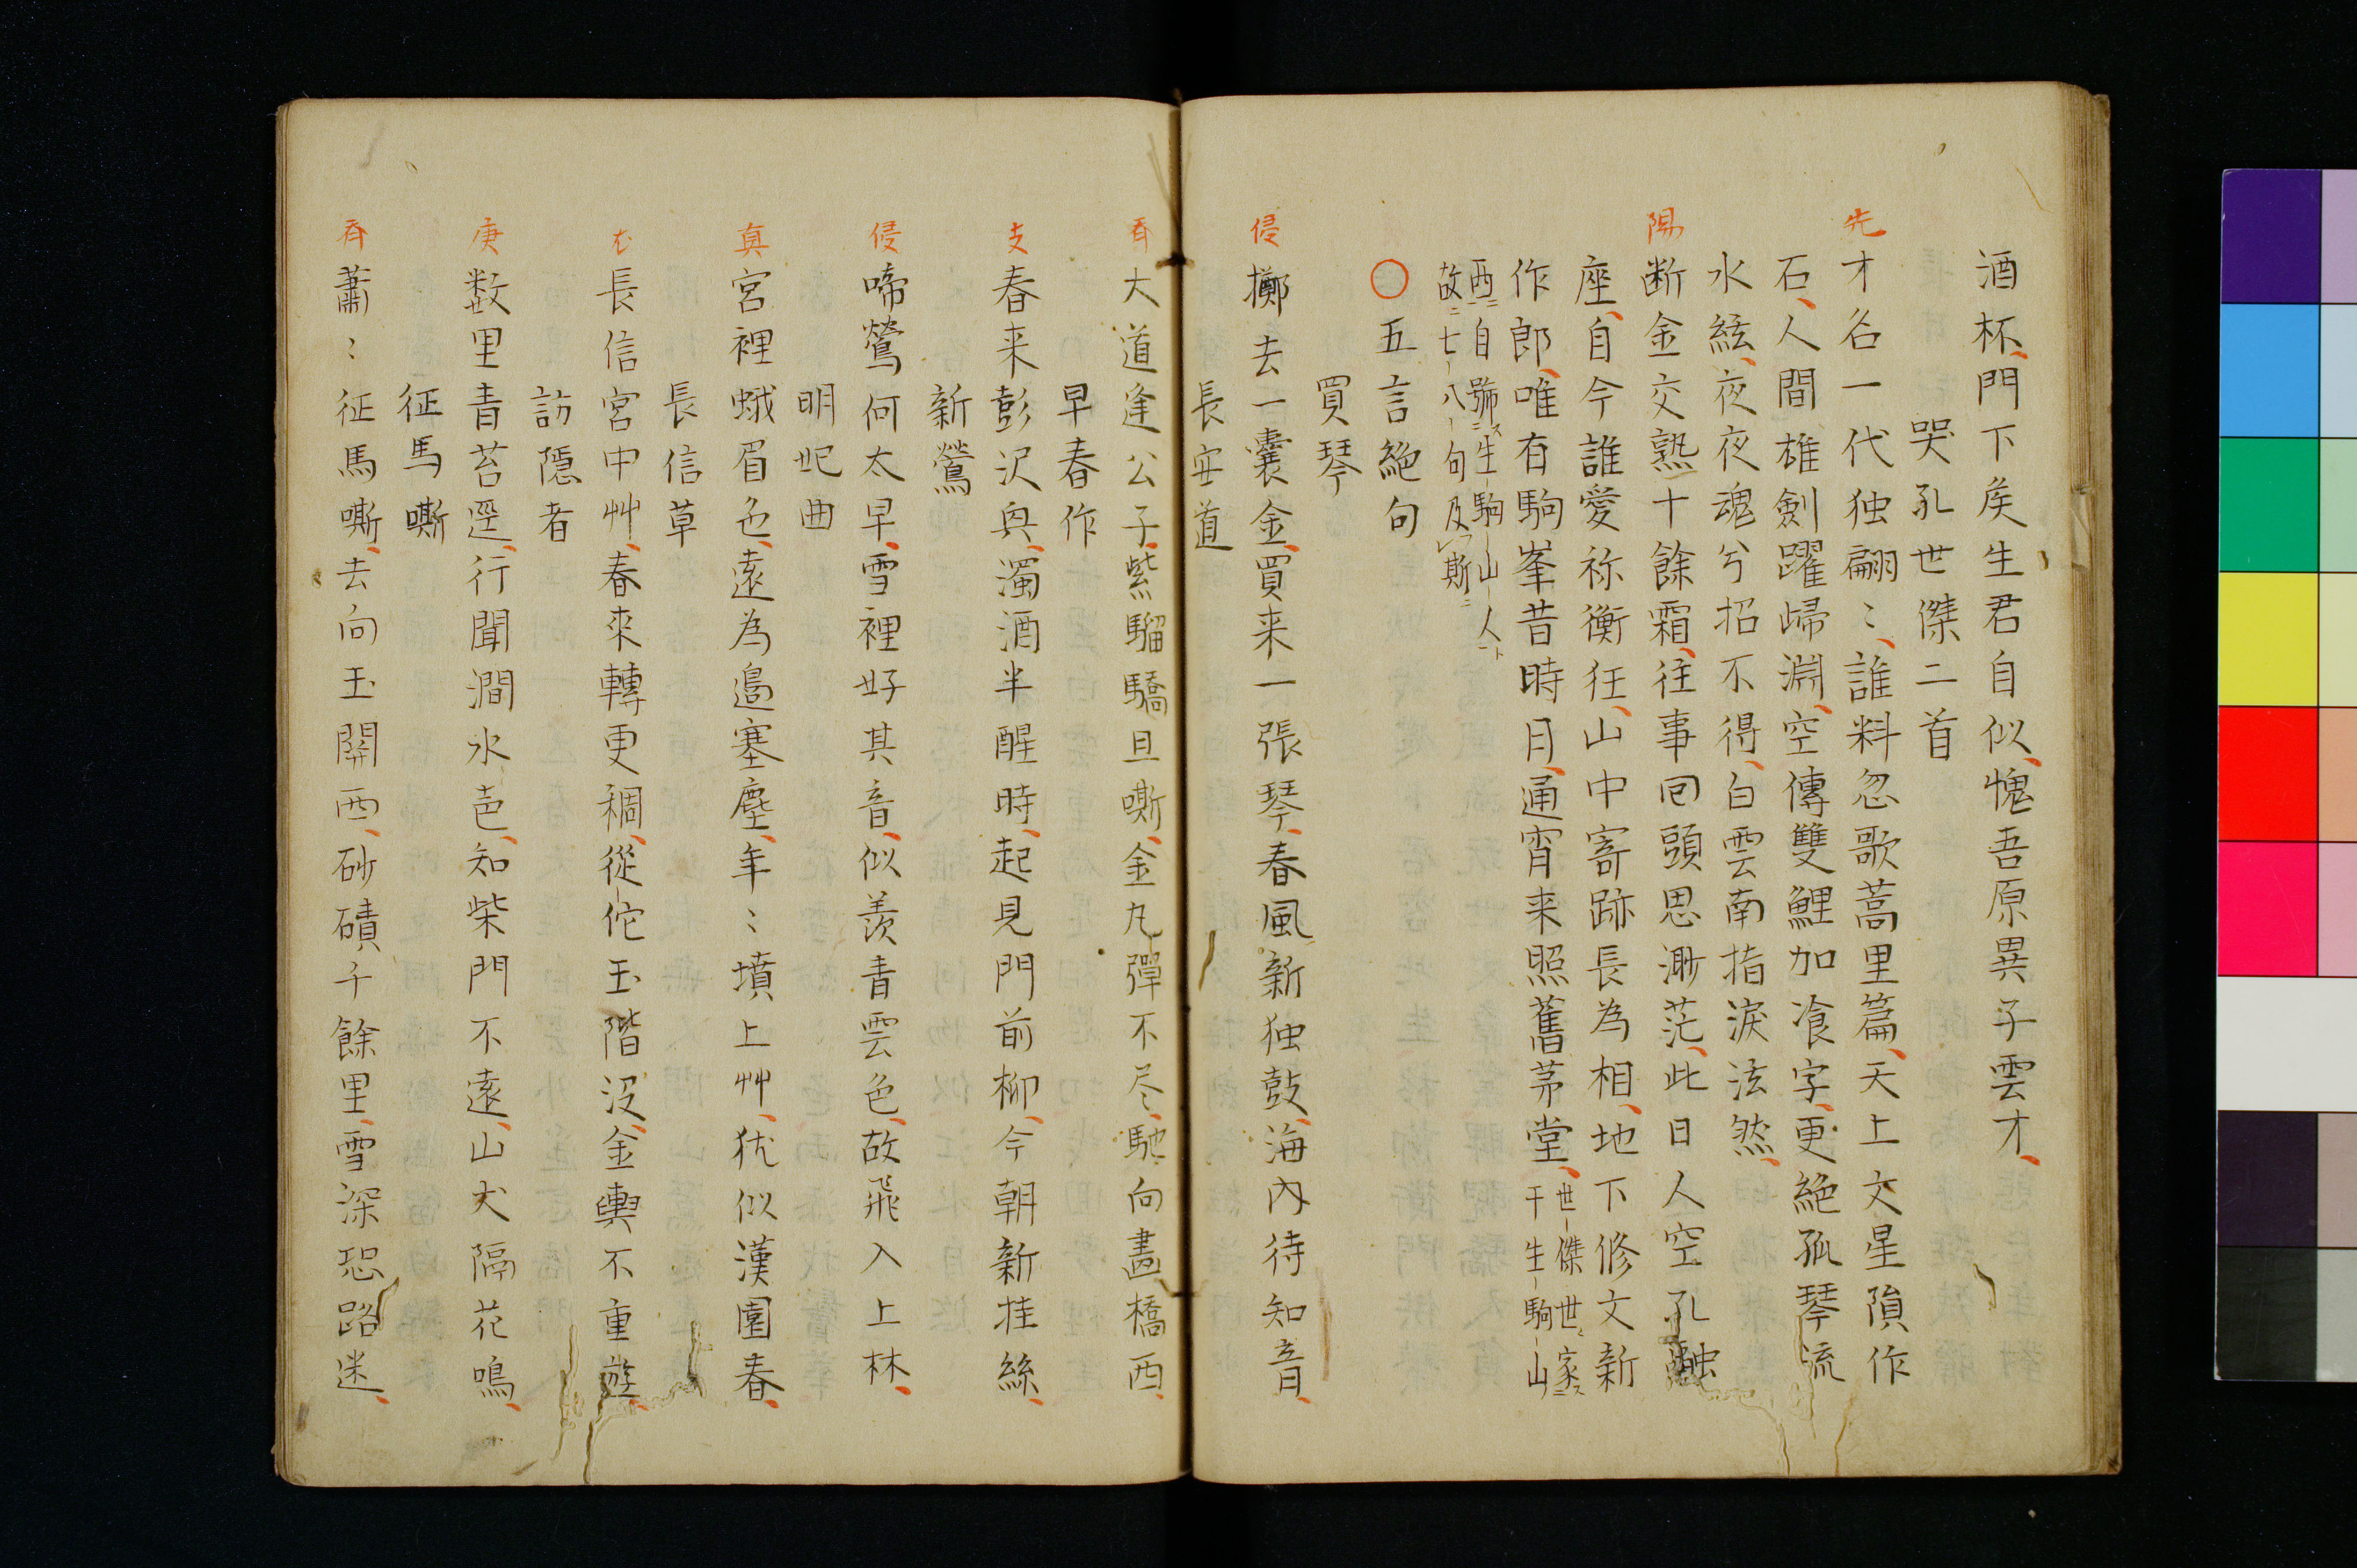 酒杯、門下侯生君自似、愧吾原異子雲才、
哭孔世傑二首
先
才名一代独翩〻、誰料忽歌蒿里篇、天上文星隕作
石、人間雄劍躍帰淵、空傳雙鯉加飡字、更絶孤琴流
水絃、夜夜魂兮招不得、白雲南指淚泫然、
陽
断金交熟十餘霜、往事回頭思渺茫、此日人空孔融
座、自今誰愛祢衡狂、山中寄跡長為相、地下修文新
作郎、唯有駒峯昔時月、通宵来照舊茅堂、
世傑世〻家ス
干生駒山ニ
西ニ自號ス生駒山人ト
故ニ七八句及フ斯ニ
〇五言絶句
買琴
侵
擲去一囊金、買来一張琴、春風新独鼓、海内待知音、
長安道
斉
大道逢公子、紫騮驕且嘶、金丸彈不尽、馳向畫橋西、
早春作
支
春来彭沢興、濁酒半醒時、起見門前柳、今朝新挂絲、
新鶯
侵
啼鶯何太早、雪裡好其音、似羨青雲色、故飛入上林、
明妃曲
真
宮裡蛾眉色、遠為邊塞塵、年〻墳上艸、犹似漢園春、
長信草
尤
長信宮中艸、春來轉更稠、從佗玉階没、金輿不重遊、
訪隠者
庚
数里青苔逕、行聞澗水声、知柴門不遠、山犬隔花鳴、
征馬嘶
斉
蕭〻征馬嘶、去向玉関西、砂磧千餘里、雪深恐路迷、